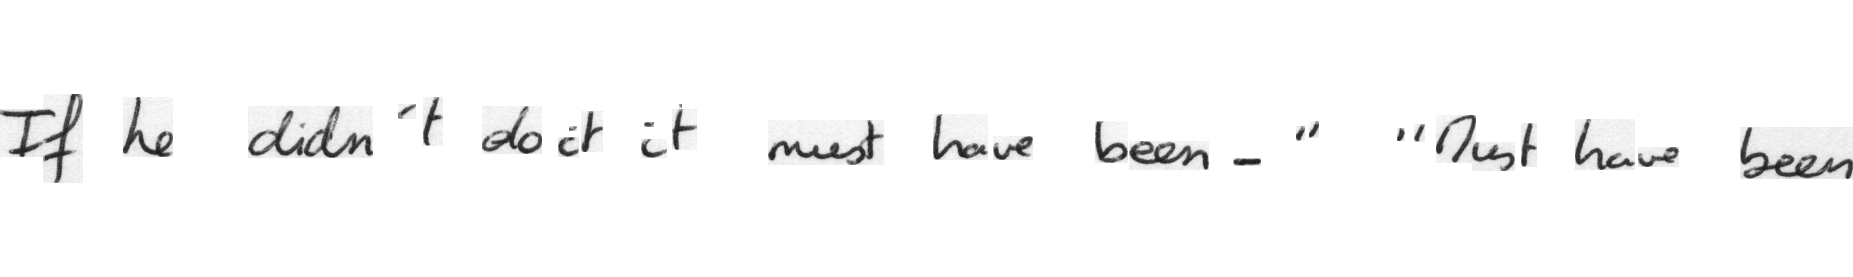 If he didn't do it it must have been - " " Must have been